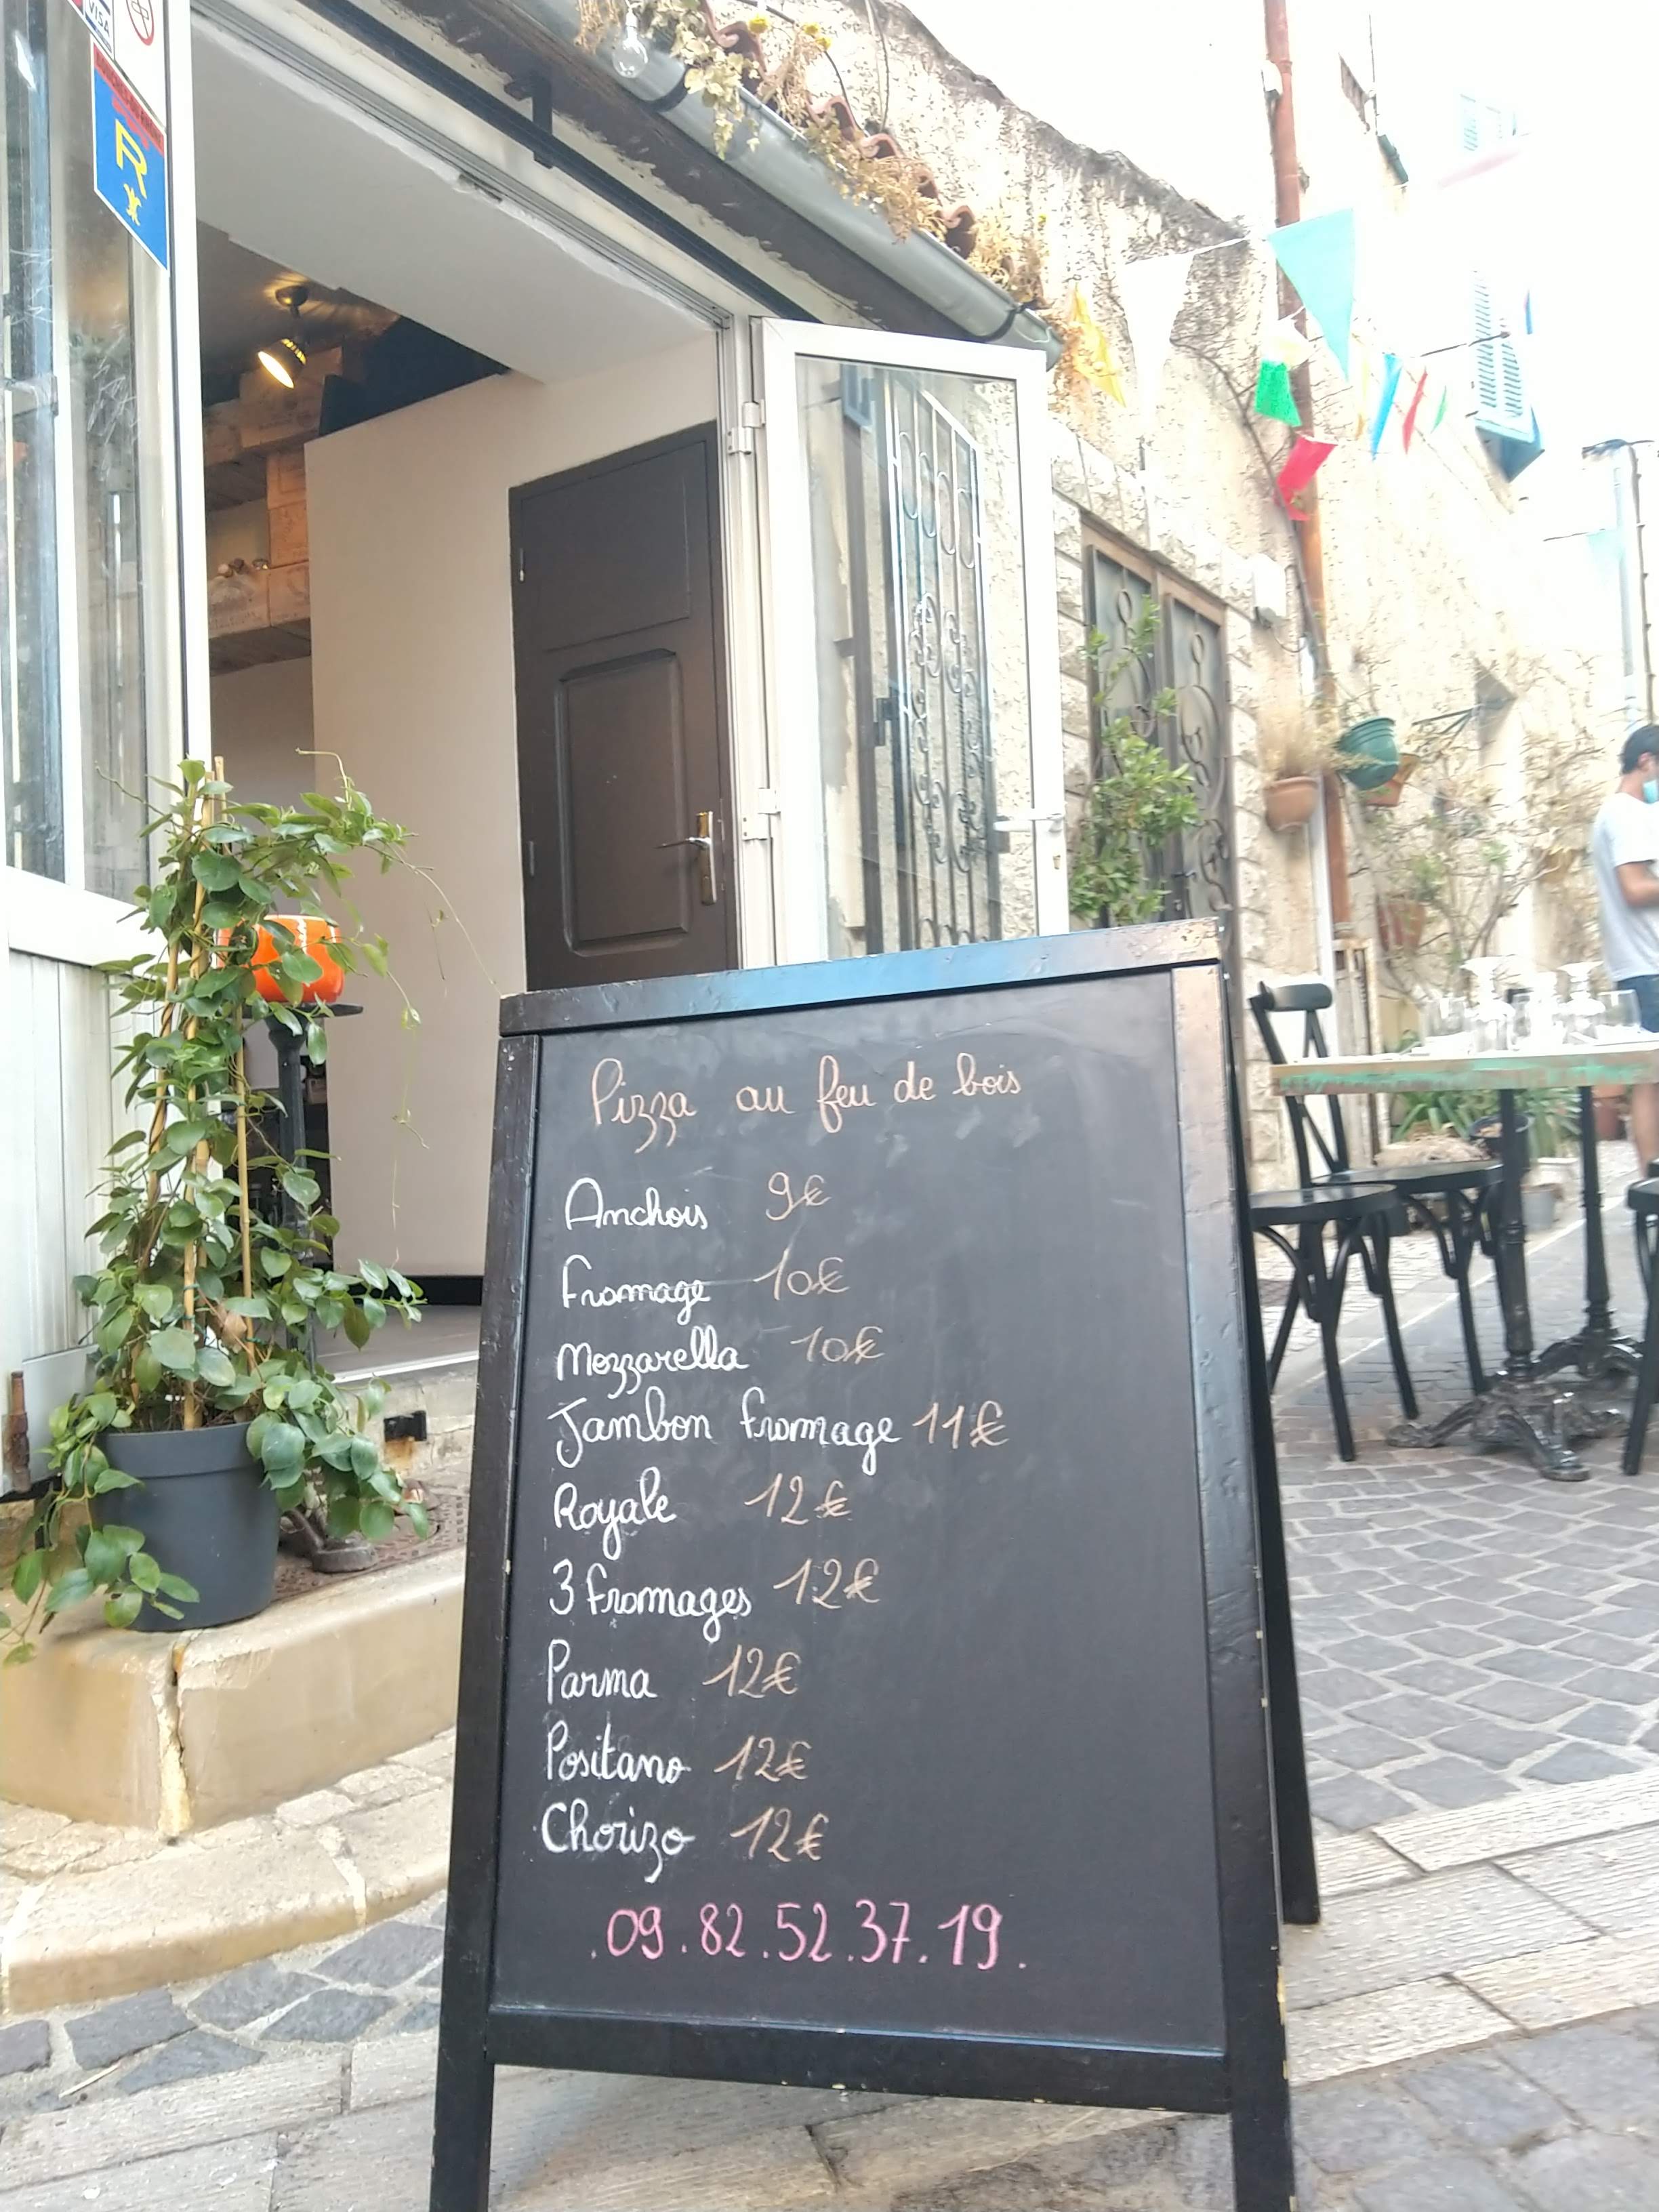 VISA
R
Pizza au feu de bois
Anchois 9€
Fromage 10€
Mozzarella 10€
Jambon fromage 11€
Royale 12€
3 fromages 12€
Parma 12€
Positano 12€
Chorizo 12€
.09.82.52.37.19.